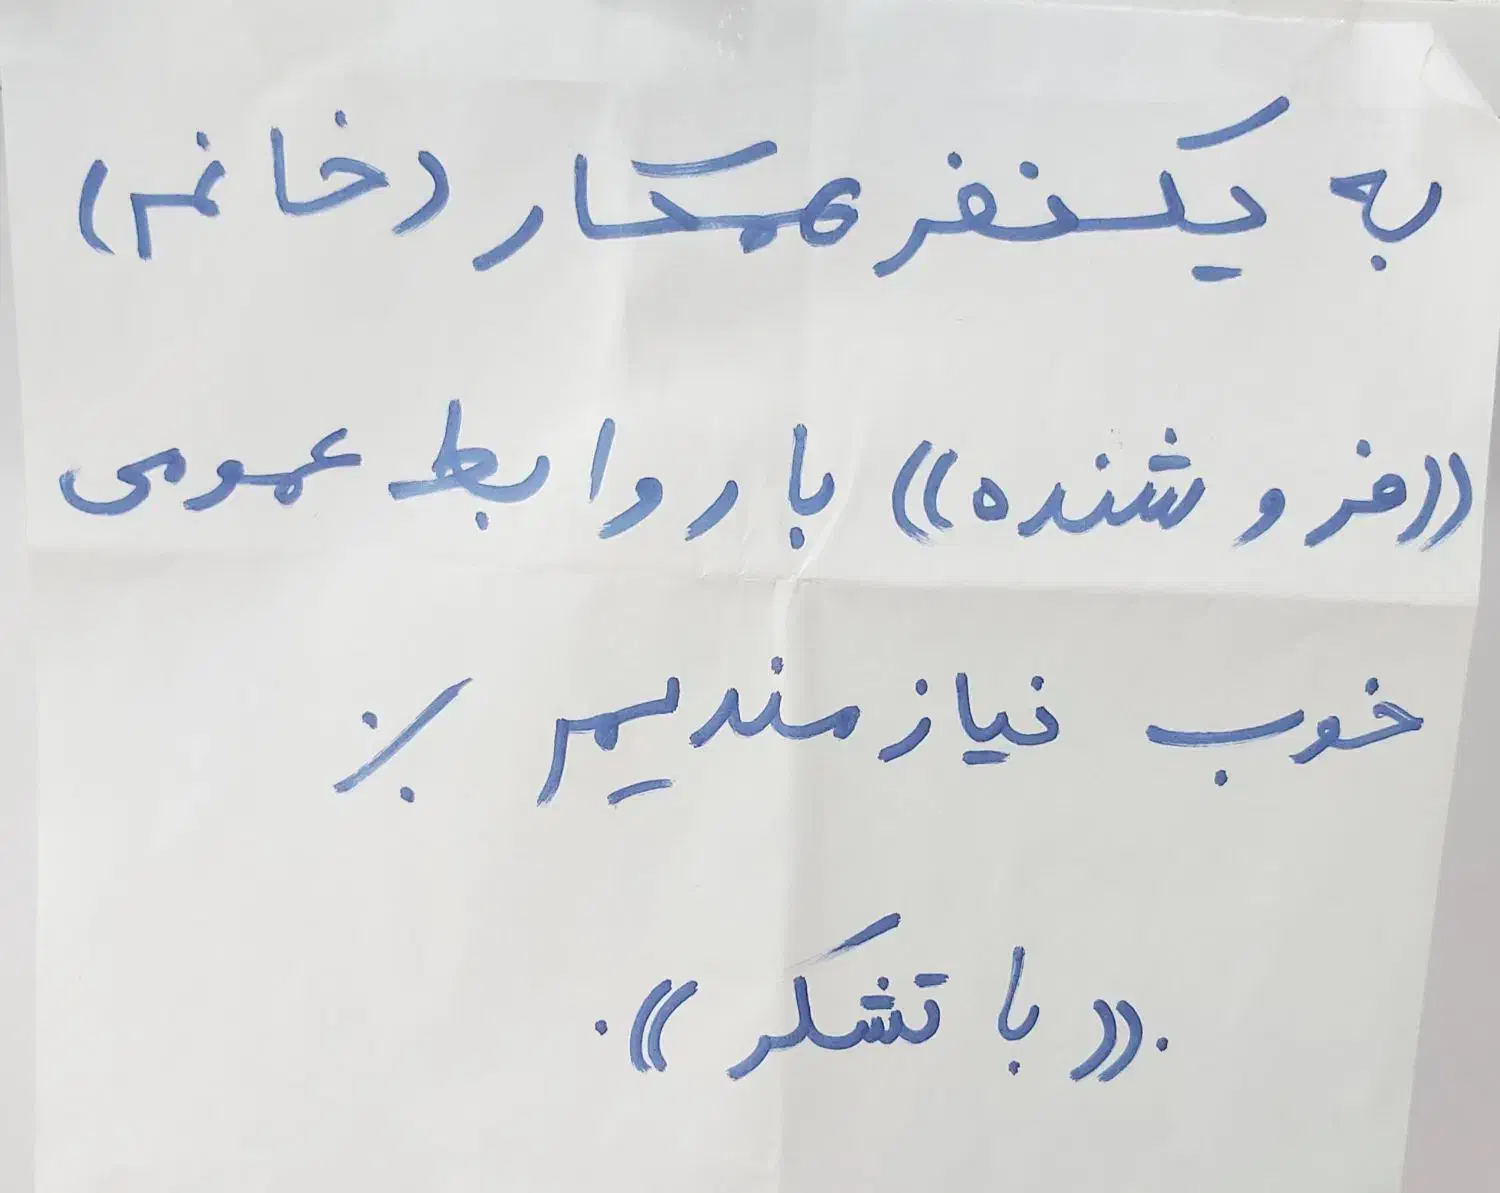 به یکنفر همکار (خانم)
((فروشنده)) با روابط عمومی
خوب نیازمندیم ٪
.((با تشکر)).